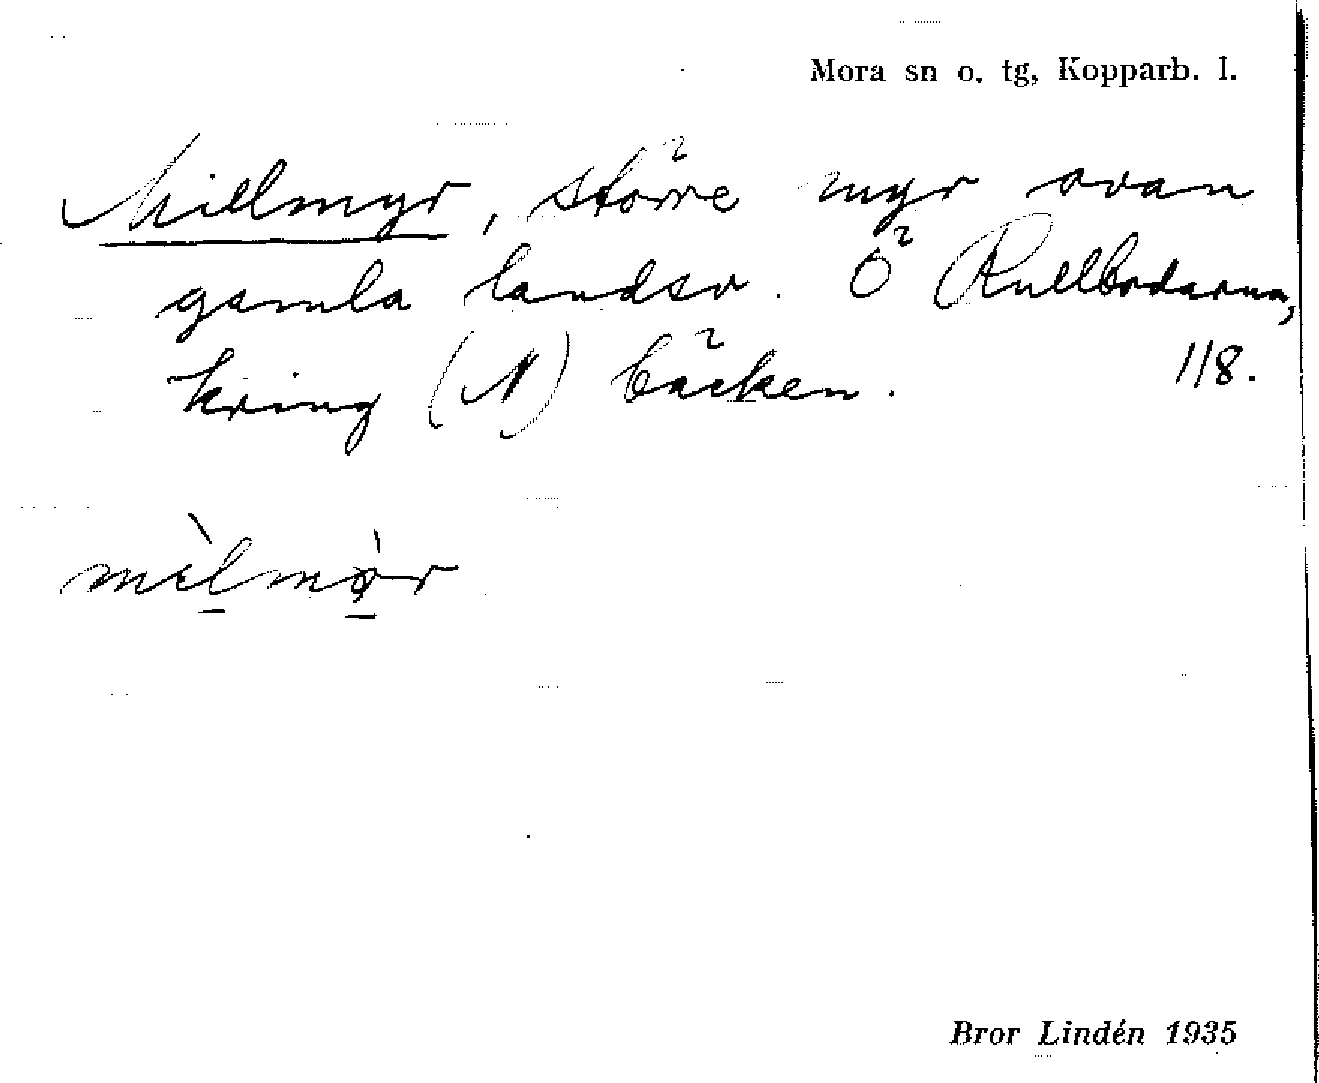 Mora sn o. tg, Kopparb. l.
Millmyr, större myr ovan
gamla landsv. Ö Rullbodarna,
kring (N) bäcken. 118.
mìlmø̀r
Bror Lindén 1935